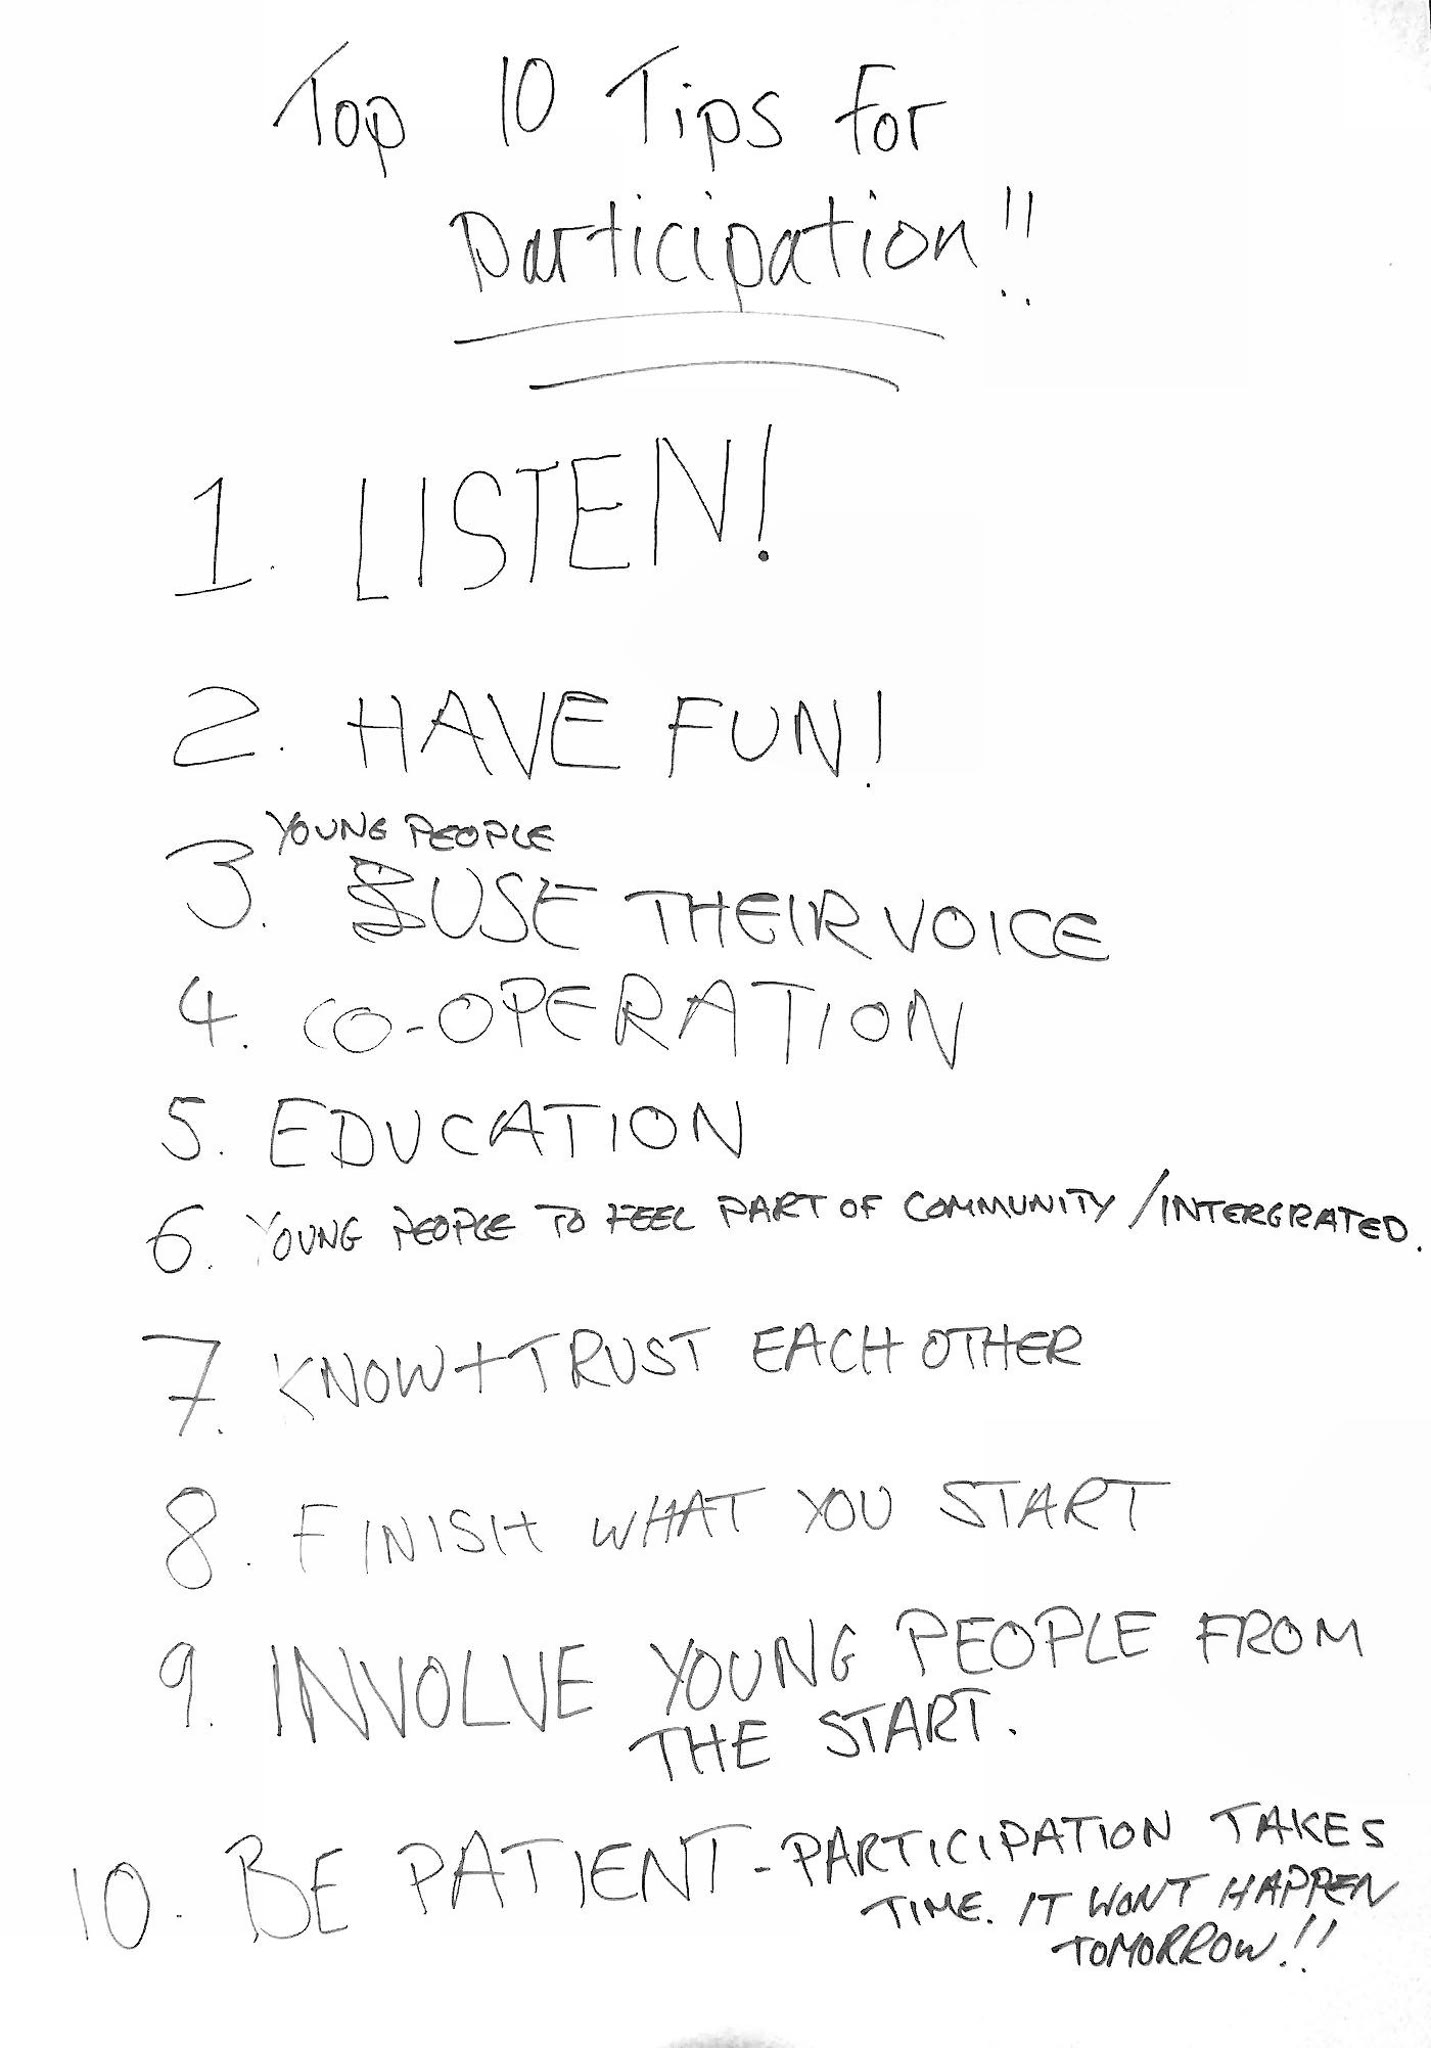 Top 10 Tips for
Participation!!
1. LISTEN!
2. HAVE FUN!
YOUNG PEOPLE
3. USE THEIR VOICE
4. CO-OPERATION
5. EDUCATION
6. YOUNG PEOPLE TO FEEL PART OF COMMUNITY/INTERGRATED.
7. KNOW + TRUST EACH OTHER
8. FINISH WHAT YOU START
9. INVOLVE YOUNG PEOPLE FROM
THE START.
10. BE PATIENT - PARTICIPATION TAKES
TIME. IT WONT HAPPEN
TOMORROW!!